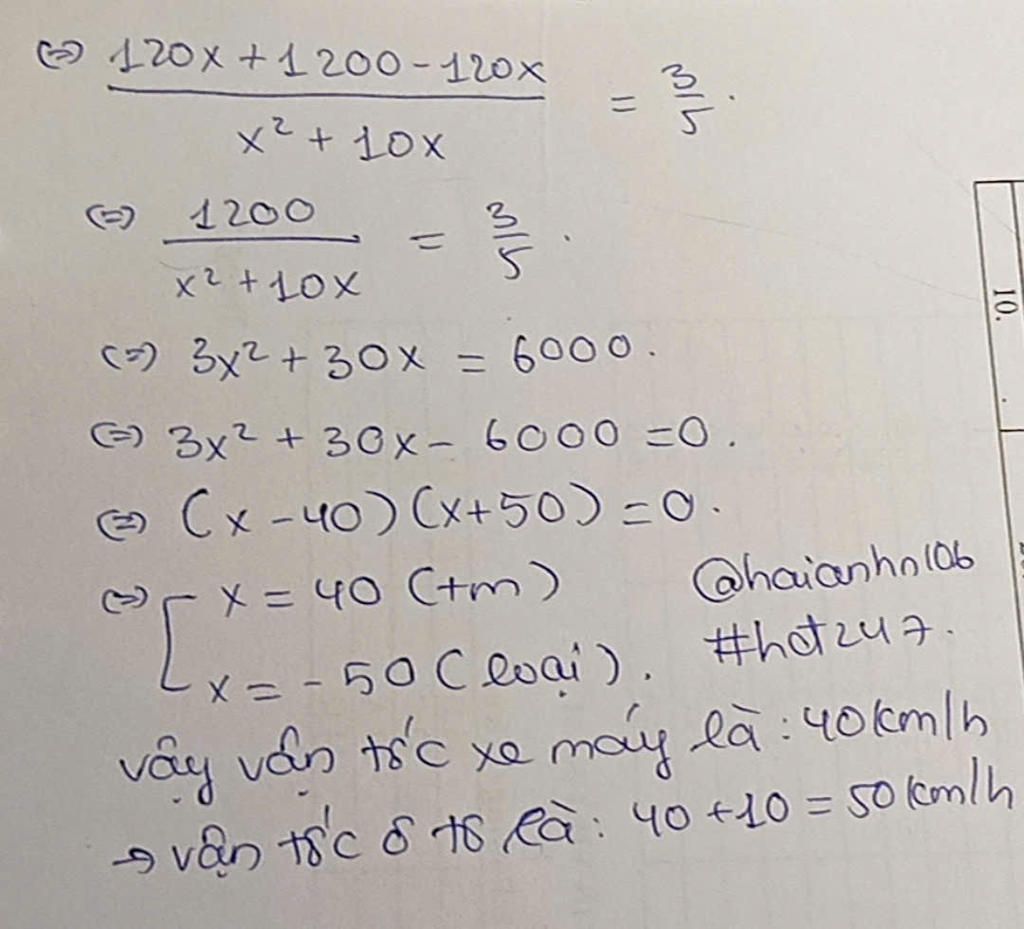 (=) 120x + 1200 - 120x / x² + 10x = 3/5.
(=) 1200 / x² + 10x = 3/5.
(=) 3x² + 30x = 6000.
(=) 3x² + 30x - 6000 = 0.
(=) (x - 40)(x + 50) = 0.
(=) [ x = 40 (tm)
x = -50 (loại).
@haianhn106
#hot247.
vậy vận tốc xe máy là: 40km/h
→ vận tốc ô tô là: 40 + 10 = 50km/h
10.